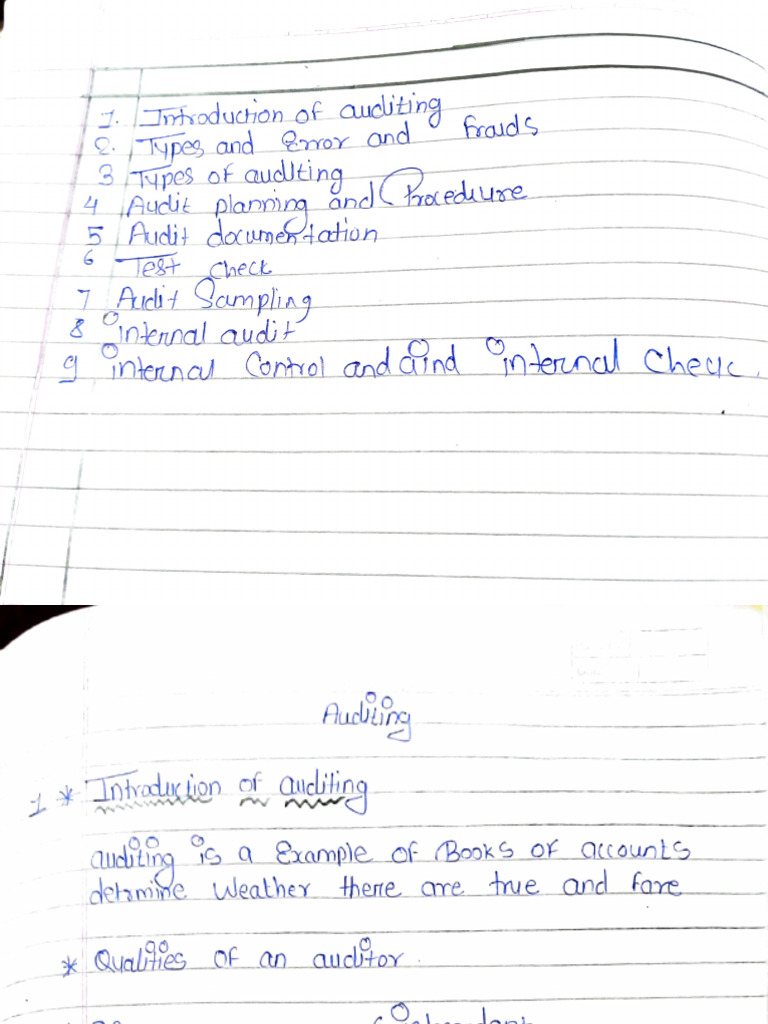 1. Introduction of auditing
2. Types and Error and frauds
3 Types of auditing
4 Audit planning and Procedure
5 Audit documentation
6 Test check
7 Audit Sampling
8 internal audit
9 internal Control and aind internal Check.
Auditing
1 * Introduction of auditing
auditing is a Example of Books of accounts
detrmine Weather there are true and fare
* Qualities of an auditor.